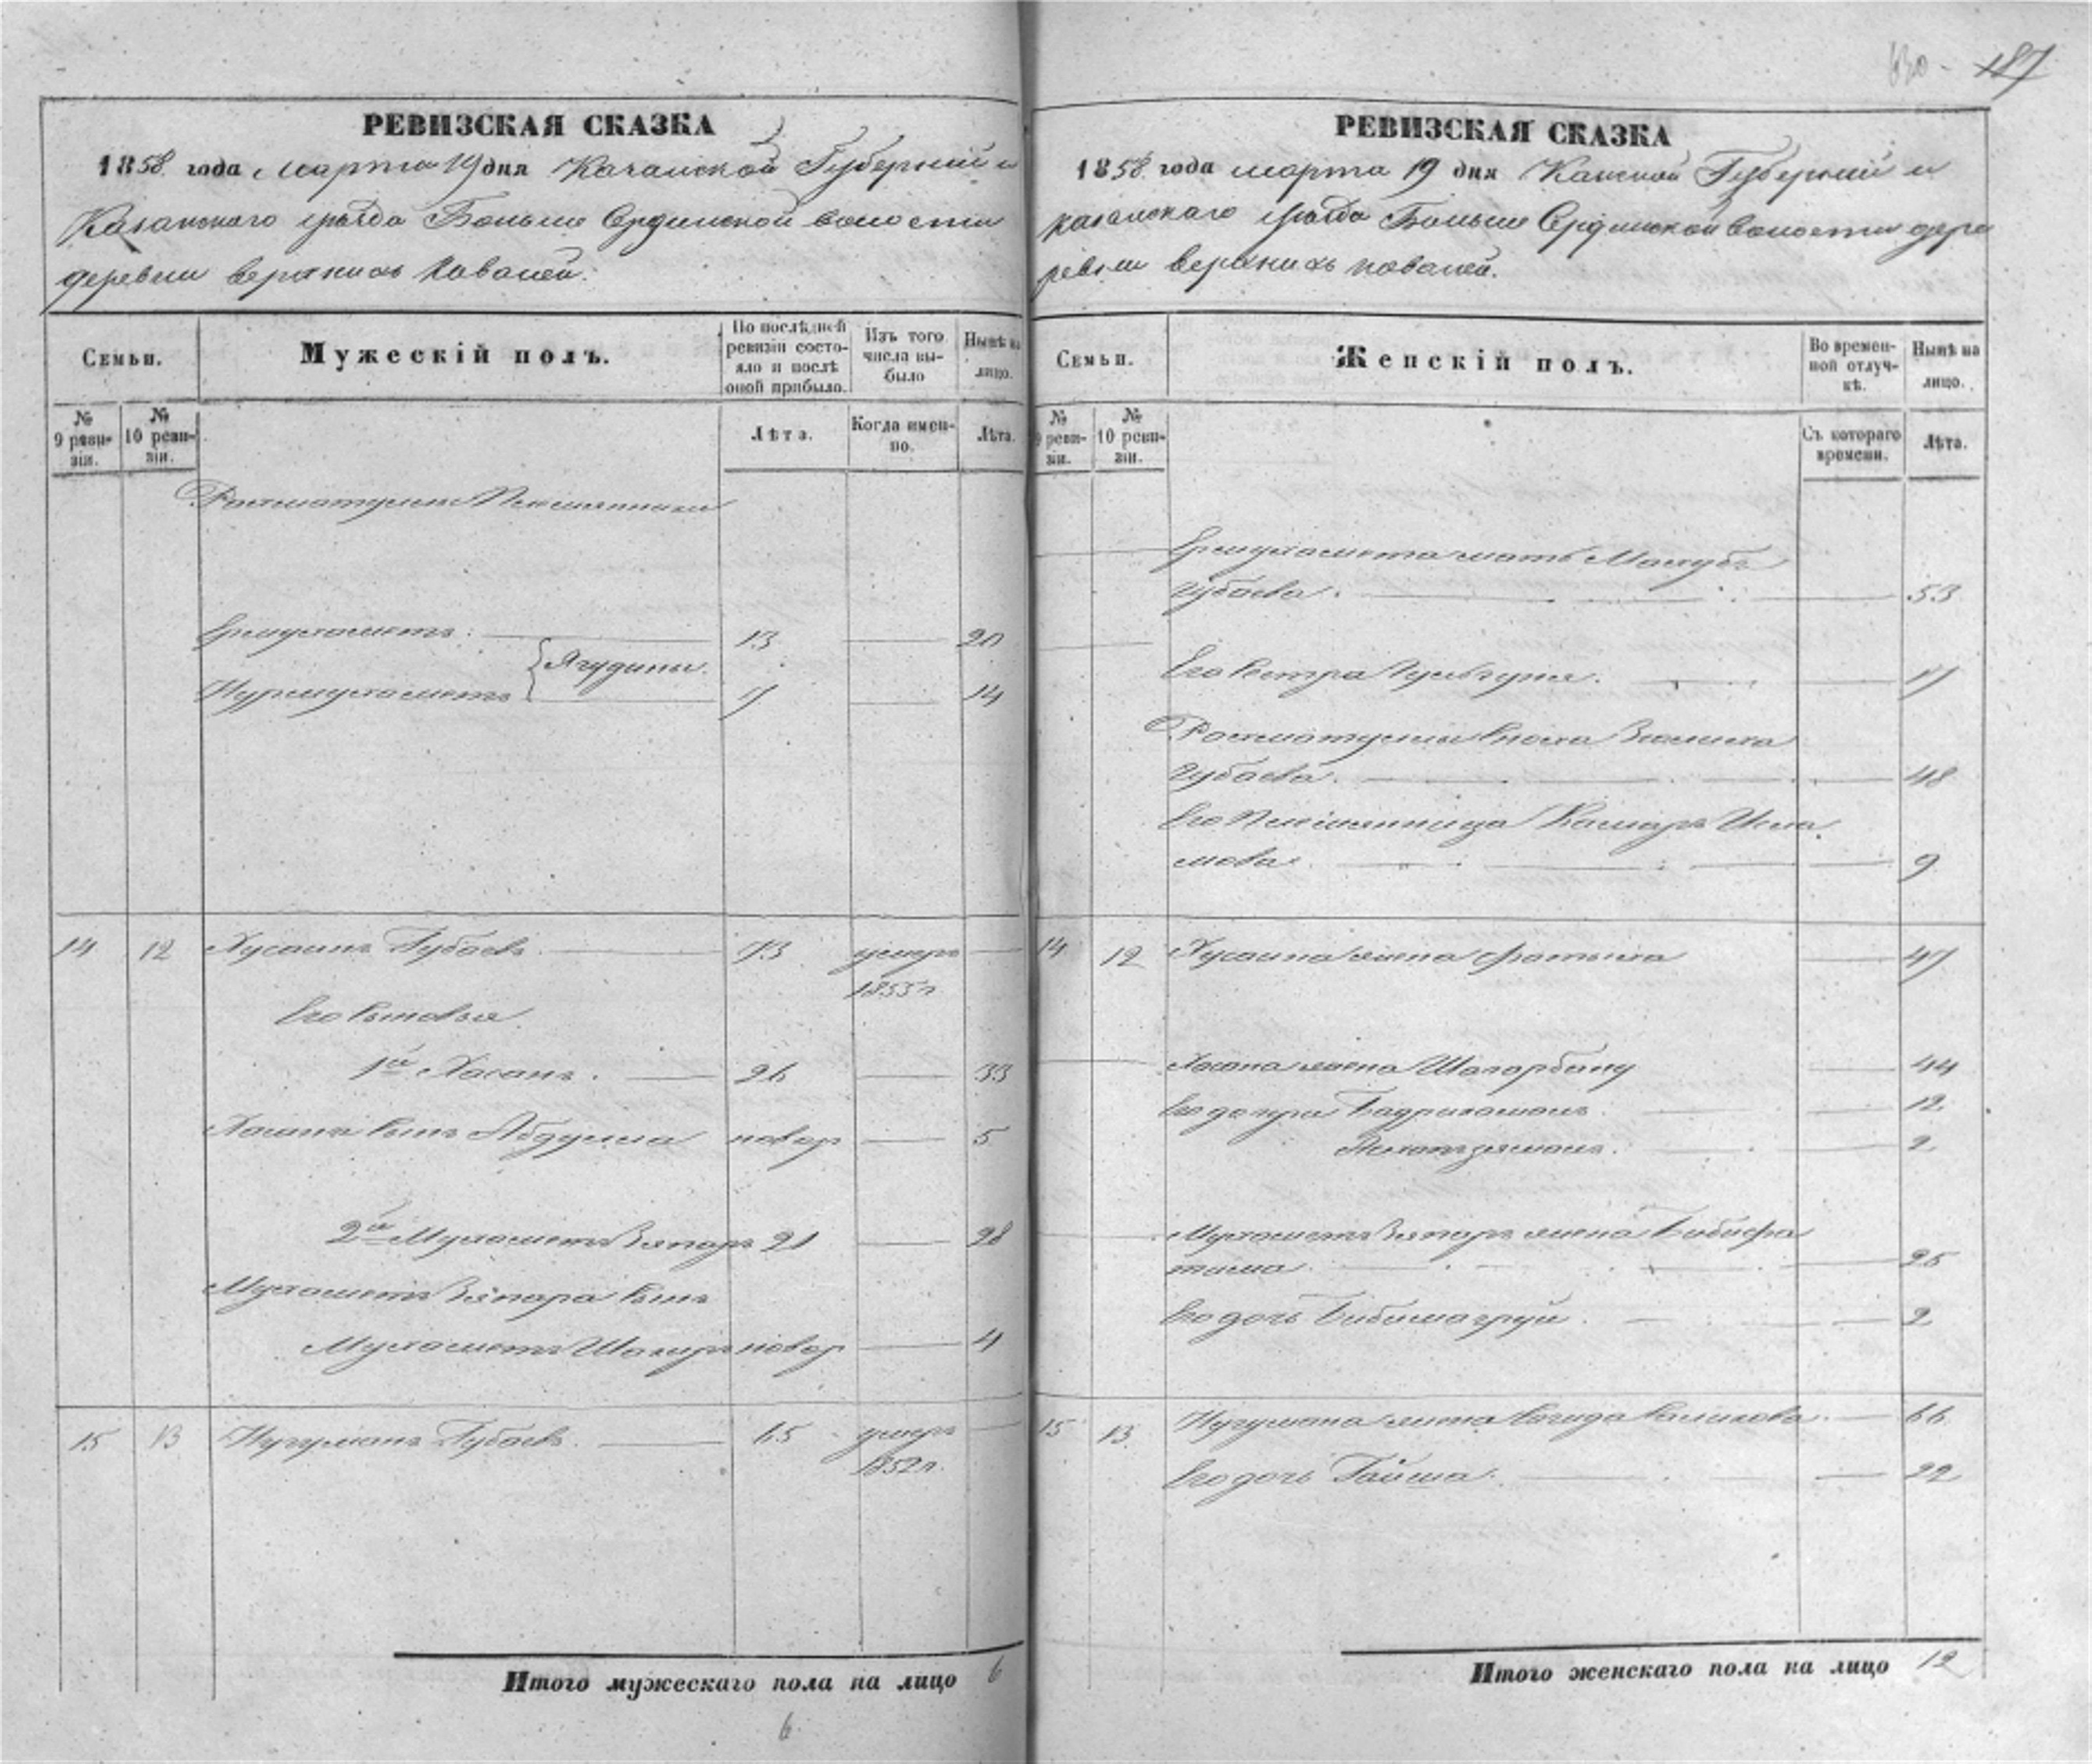 630 - 187
РЕВИЗСКАЯ СКАЗКА
1858 года марта 19 дня Казанской Губернии и
Казанского уезда Больше Ординской волости
деревни верхних Ковалей.
Семьи.
Мужескій полъ.
По послѣдней ревизіи состояло и послѣ оной прибыло.
Изъ того числа выбыло
Нынѣ на лицо.
№ 9 ревизіи.
№ 10 ревизіи.
Лѣта.
Когда именно.
Лѣта.
Рахматуллы Племянники
13 20
Ягудины
Нурмухаметъ 7 14
14 12 Хусаинъ Губаевъ 73 умеръ
1855 г.
Его сыновья
1й Хасанъ. 26 33
Хасана сынъ Абдулла новор 5
2й Мухаметъ Зяпаръ 21 28
Мухаметъ Зяпара сынъ
Мухаметъ Шакиръ новор 4
15 13 Нугуманъ Губаевъ. 65 умеръ
1852 г.
Итого мужескаго пола на лицо 6
6
РЕВИЗСКАЯ СКАЗКА
1858 года марта 19 дня Канской Губернии и
казанскаго уезда Больше Ординской волости дере
ревни верхнихъ ковалей.
Семьи.
Женскій полъ.
Во временной отлучкѣ.
Нынѣ на лицо.
№ 9 ревизіи.
№ 10 ревизіи.
Съ котораго времени.
Лѣта.
мать
Губаева. 53
Его сестра 17
Рахматуллы сноха
Губаева. 48
Его Племянница Камаръ Исла
мова. 9
14 12 Хусаина жена Фатыха 47
Хасана жена Шагарбану 44
Его дочери 12
2
Мухаметъ Зяпара жена Бибифа
тима 25
Его дочь 2
15 13 Нугумана жена Сагида Салихова. 66
Его дочь Гайша. 22
Итого женскаго пола на лицо 12